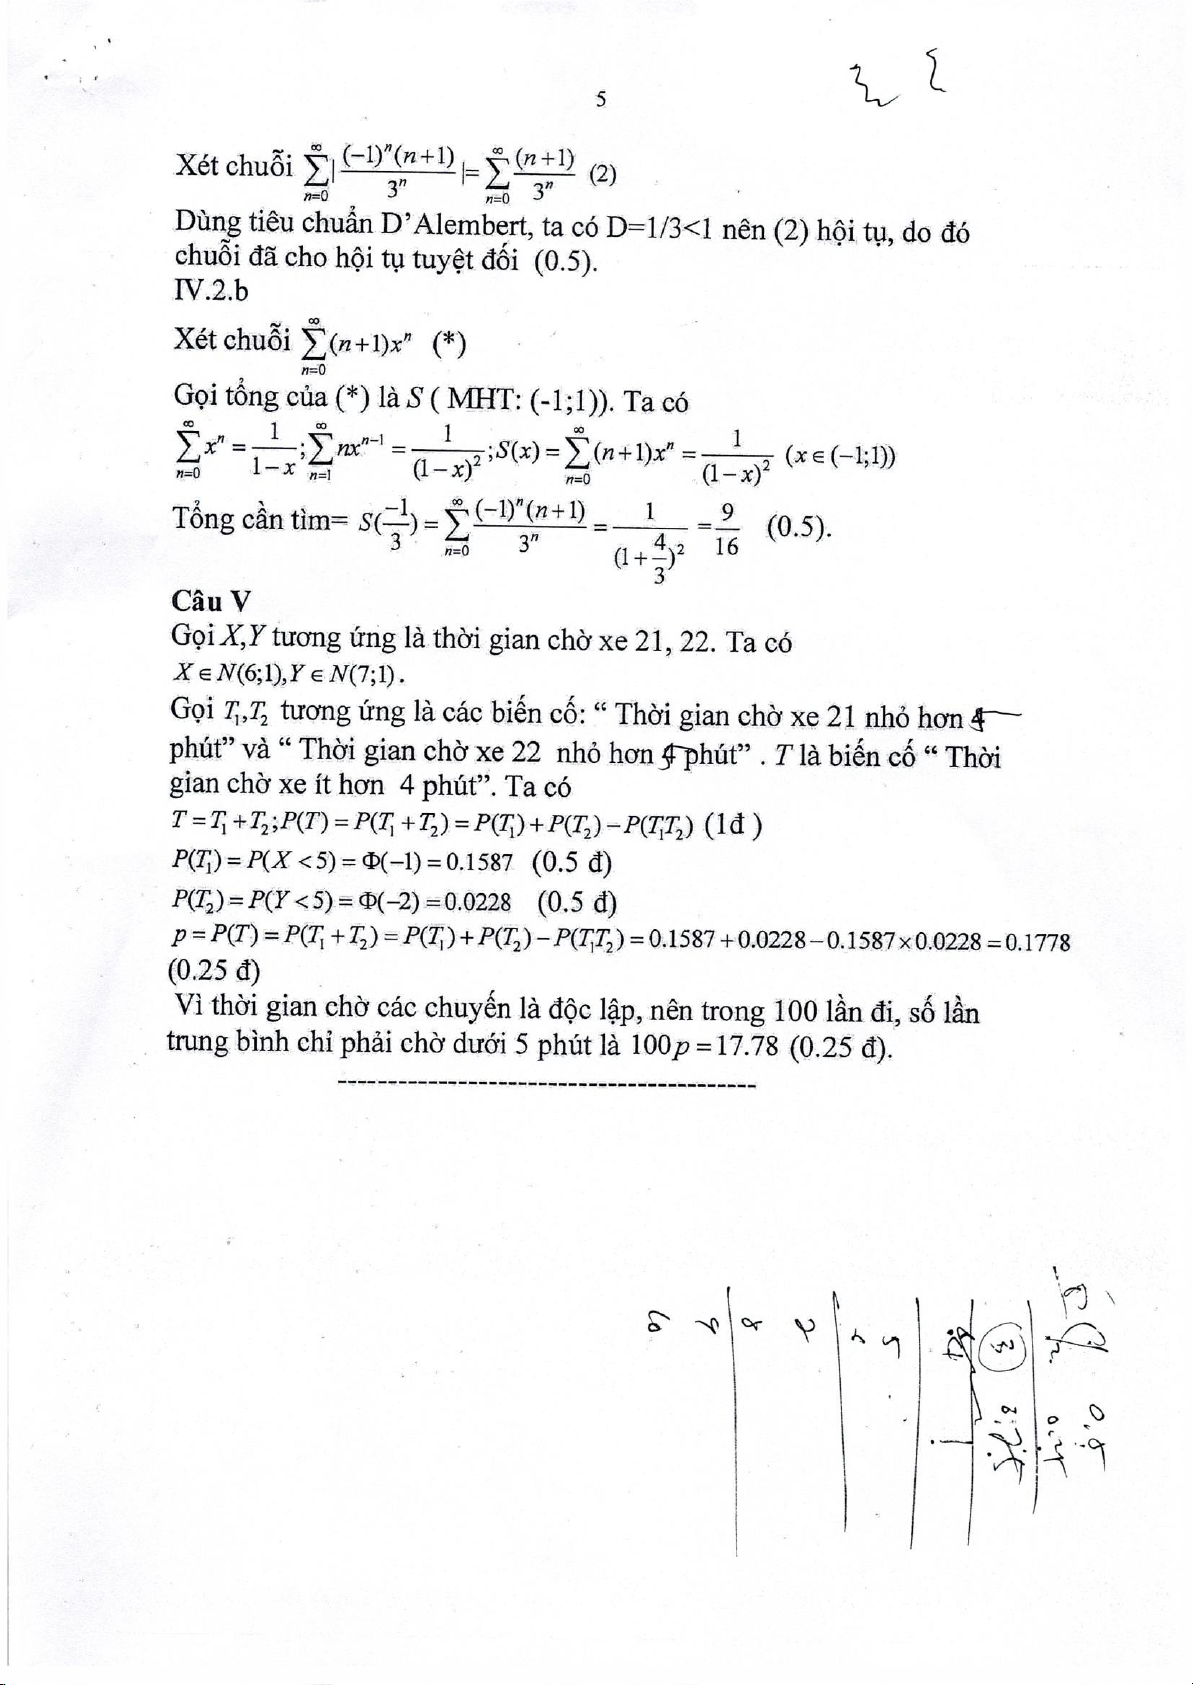 5
Xét chuỗi \sum_{n=0}^{\infty} | \frac{(-1)^n(n+1)}{3^n} | = \sum_{n=0}^{\infty} \frac{(n+1)}{3^n} (2)
Dùng tiêu chuẩn D'Alembert, ta có D=1/3<1 nên (2) hội tụ, do đó
chuỗi đã cho hội tụ tuyệt đối (0.5).
IV.2.b
Xét chuỗi \sum_{n=0}^{\infty} (n+1)x^n (*)
Gọi tổng của (*) là S ( MHT: (-1;1)). Ta có
\sum_{n=0}^{\infty} x^n = \frac{1}{1-x}; \sum_{n=1}^{\infty} nx^{n-1} = \frac{1}{(1-x)^2}; S(x) = \sum_{n=0}^{\infty} (n+1)x^n = \frac{1}{(1-x)^2} (x ∈ (-1;1))
Tổng cần tìm= S(\frac{-1}{3}) = \sum_{n=0}^{\infty} \frac{(-1)^n(n+1)}{3^n} = \frac{1}{(1+\frac{4}{3})^2} = \frac{9}{16} (0.5).
Câu V
Gọi X,Y tương ứng là thời gian chờ xe 21, 22. Ta có
X ∈ N(6;1), Y ∈ N(7;1).
Gọi T₁,T₂ tương ứng là các biến cố: “ Thời gian chờ xe 21 nhỏ hơn
phút” và “ Thời gian chờ xe 22 nhỏ hơn phút” . T là biến cố “ Thời
gian chờ xe ít hơn 4 phút”. Ta có
T = T₁ + T₂; P(T) = P(T₁ + T₂) = P(T₁) + P(T₂) − P(T₁T₂) (1đ )
P(T₁) = P(X < 5) = Φ(−1) = 0.1587 (0.5 đ)
P(T₂) = P(Y < 5) = Φ(−2) = 0.0228 (0.5 đ)
p = P(T) = P(T₁ + T₂) = P(T₁) + P(T₂) − P(T₁T₂) = 0.1587 + 0.0228 − 0.1587 × 0.0228 = 0.1778
(0.25 đ)
Vì thời gian chờ các chuyến là độc lập, nên trong 100 lần đi, số lần
trung bình chỉ phải chờ dưới 5 phút là 100p = 17.78 (0.25 đ).